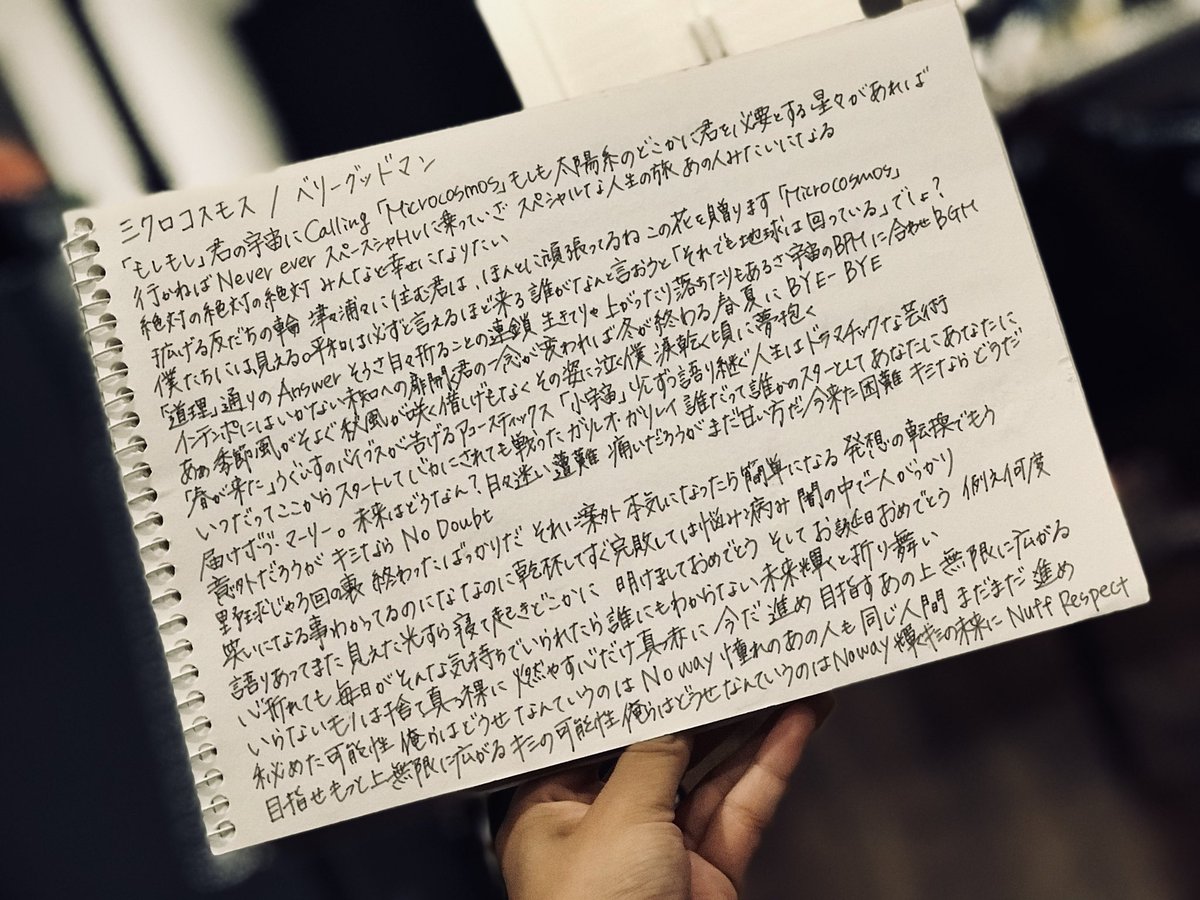 ミクロコスモス / ベリーグッドマン
「もしもし」君の宇宙に Calling「Microcosmos」もしも太陽系のどこかに君を必要とする星々があれば
行かねば Never ever スペースシャトルに乗っていざ スペシャルな人生の旅 あの人みたいになる
絶対の絶対の絶対 みんなと幸せになりたい
拡げる友だちの輪 津々浦々に住む君は、ほんとに頑張ってるね この花を贈ります「Microcosmos」
僕たちには見える。平和は必ずと言えるほど来る 誰がなんと言おうと「それでも地球は回っている」でしょ?
「道理」通りの Answer そうさ日々折ることの連鎖 生きてりゃ上がったり落ちたりもあるさ 宇宙のBPMに合わせBGM
インテンポにはいかない 未知への扉開く君の一念が変われば冬が終わる 春夏に BYE-BYE
あぁ 季節風がそよぐ 秋風が咲く 惜しげもなく その姿に泣く僕 涙乾く頃に夢抱く
「春が来た」うぐいすのバイブスが告げるアコースティックス「小宇宙」少しずつ語り継ぐ人生はドラマチックな芸術
いつだってここからスタートして じかにされても戦ったガリレオ・ガリレイ 誰だって誰かのスターとしてあなたにあなたに
届けボブ・マーリー。未来はどうなん? 日々迷い 遭難 痛いだろうがまだ甘い方だ 今来た困難 キミならどうだ
意外だろうが キミなら No Doubt
野球じゃ3回の裏 終わったばっかりだ それに案外 本気になったら簡単になる 発想の転換でもう
笑いになる事わかってるのにな なのに乾杯してすぐ完敗しては悩み病み 闇の中で一人がっかり
語りあってまた見えた光すら 寝て起きどこかに 明けましておめでとう そしてお誕生日おめでとう 例え何度
心折れても 毎日がそんな気持ちでいられたら 誰にもわからない未来輝くと折り舞い
いらないモノは捨て真っ裸に 燃やす心だけ真っ赤に 今だ 進め 目指すあの上 無限に広がる
秘めた可能性 俺らはどうせなんていうのは No way 憧れのあの人も 同じ人間 まだまだ 進め
目指せもっと上 無限に広がるキミの可能性 俺らはどうせなんていうのは No way 輝くキミの未来に Nuff Respect